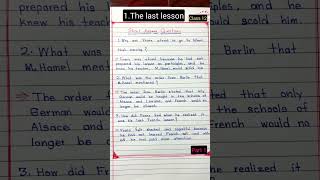 1.The last lesson
Class 12
Short Answer Questions
1. Why was Franz afraid to go to School
that morning?
⇒ Franz was afraid because he had not
prepared his lesson on participles, and he
knew his teacher, M. Hamel would scold him.
2. What was the order from Berlin that
M. Hamel mentioned?
⇒ The order from Berlin stated that only
German would be taught in the schools of
Alsace and Lorraine, and French would no
longer be allowed.
3. How did Franz feel when he realized it
was his last French lesson?
⇒ Franz felt shocked and regretful because
he had not learned French well and
he had paid more attention.
Part 1
prepared his
knew his teach
2. What was
M. Hamel me
⇒ The order
German wou
Alsace and
longer be
3. How did Fr
les, and he
scold him.
Berlin that
that only
the schools of
French would no
realized it